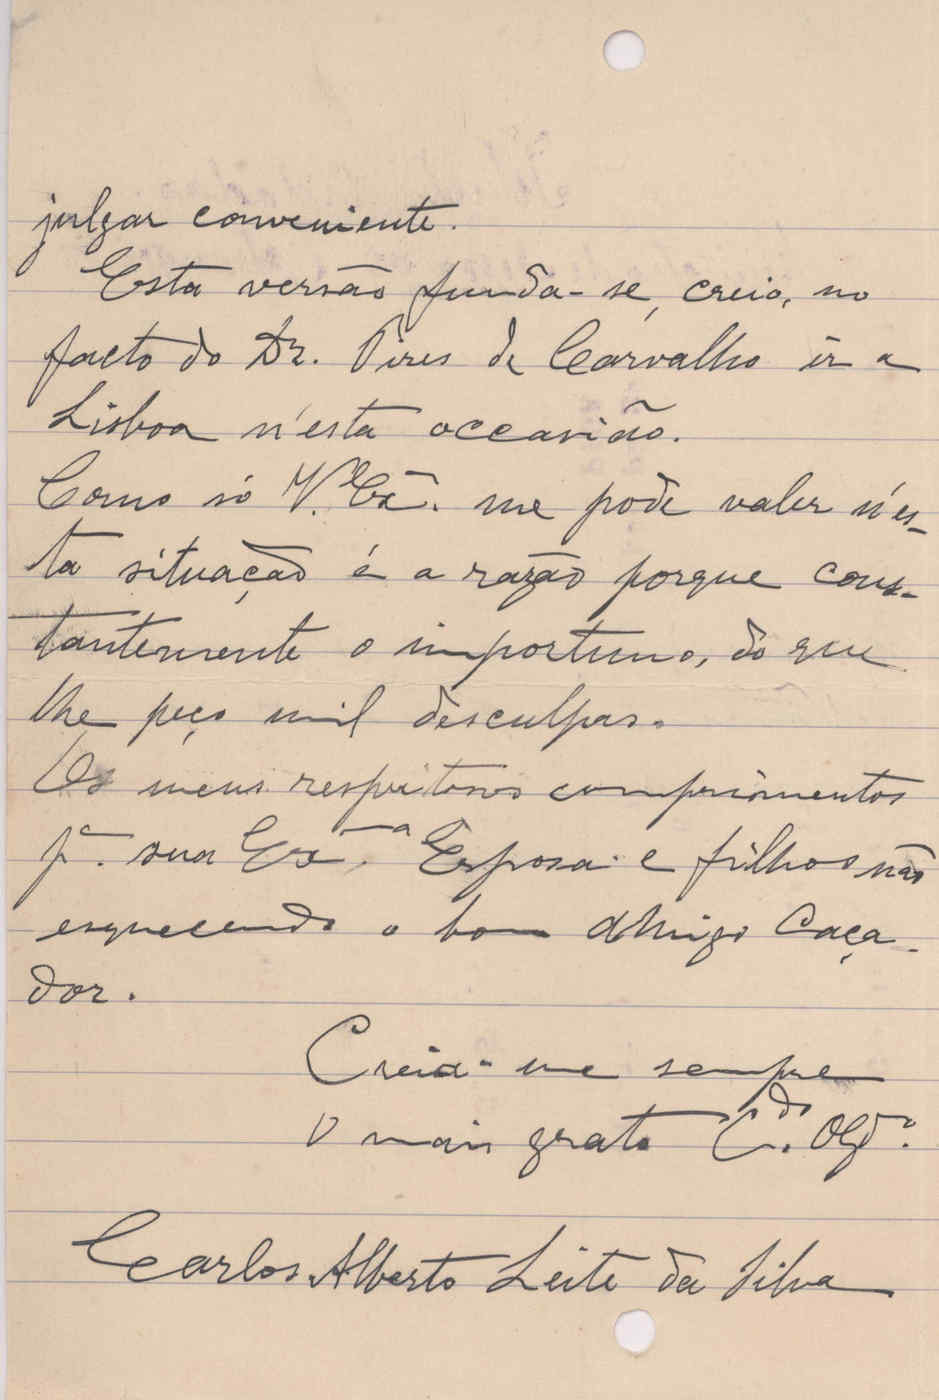 julgar conveniente.
Esta versão funda-se, creio, no
facto do Dr. Pires de Carvalho ir a
Lisboa n'esta occasião.
Como só V. Exª. me pode valer n'es-
ta situação é a razão porque cons-
tantemente o importuno, do que
lhe peço mil desculpas.
Os meus respeitosos comprimentos
pª. sua Exª. Esposa e filhos não
esquecendo o bom Amigo Caça-
dor.
Creia-me sempre
O mais grato C.do Obgº.
Carlos Alberto Leite da Silva